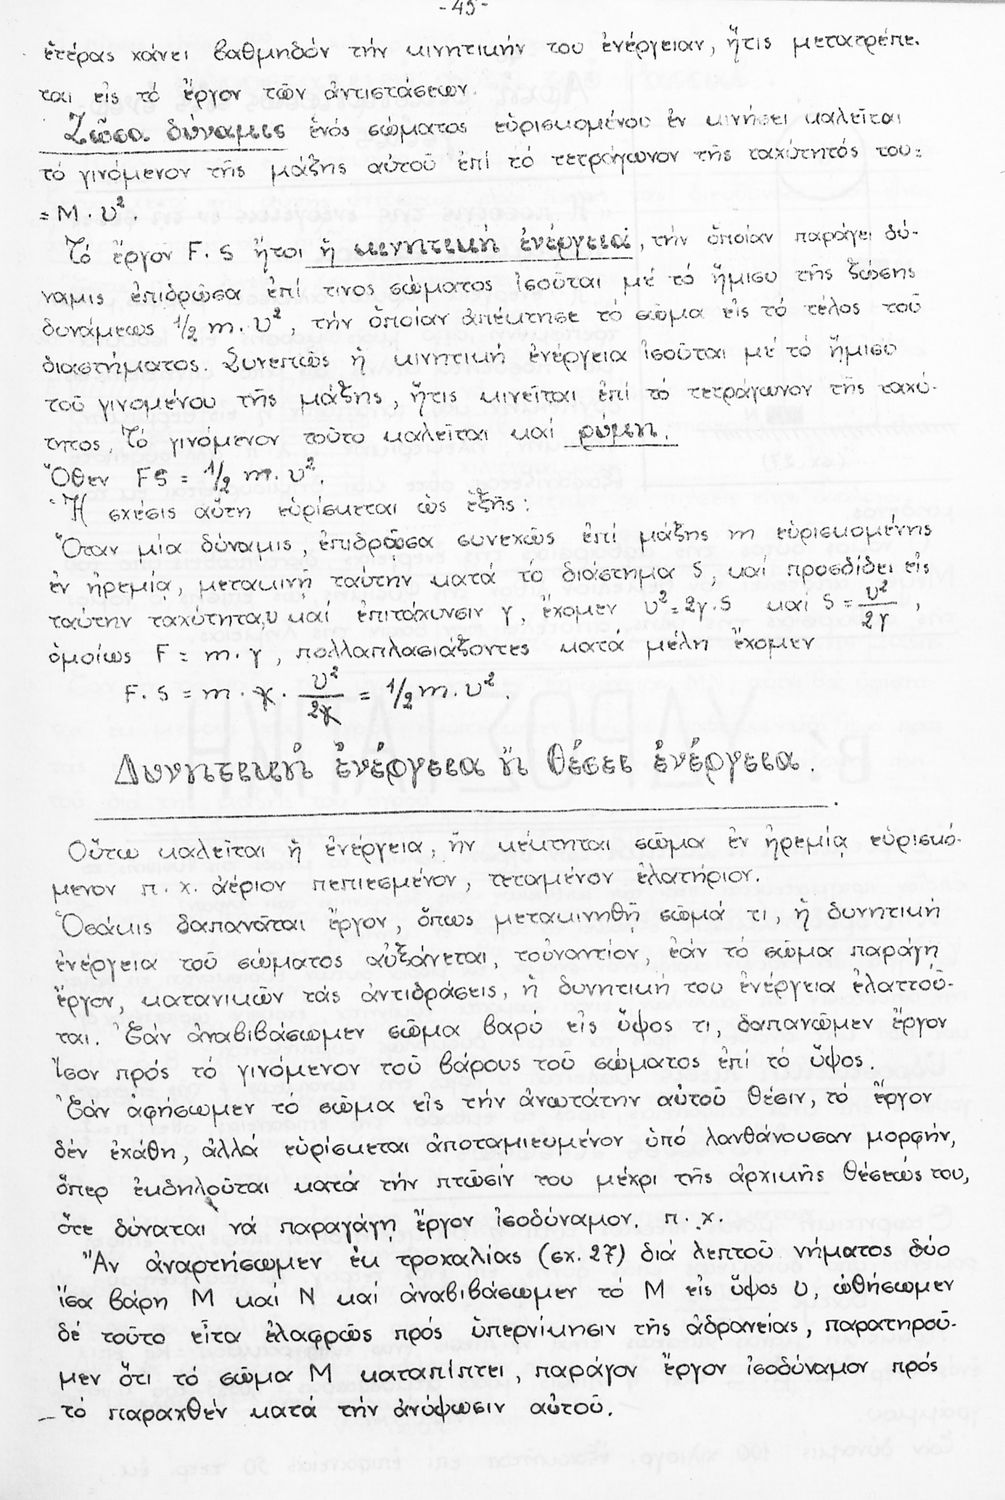 -45-
ἑτέρας χάνει βαθμηδόν τήν κινητικήν του ἐνέργειαν, ἥτις μετατρέπε-
ται εἰς τό ἔργον τῶν ἀντιστάσεων.
Ζῶσα δύναμις ἑνός σώματος εὑρισκομένου ἐν κινήσει καλεῖται
τό γινόμενον τῆς μάζης αὐτοῦ ἐπί τό τετράγωνον τῆς ταχύτητός του:
= M · υ².
Τό ἔργον F. S ἤτοι ἡ κινητική ἐνέργεια, τήν ὁποίαν παράγει δύ-
ναμις ἐπιδρῶσα ἐπί τινος σώματος ἰσοῦται μέ τό ἥμισυ τῆς ζώσης
δυνάμεως 1/2 m. υ², τήν ὁποίαν ἀπέκτησε τό σῶμα εἰς τό τέλος τοῦ
διαστήματος. Συνεπῶς ἡ κινητική ἐνέργεια ἰσοῦται μέ τό ἥμισυ
τοῦ γινομένου τῆς μάζης, ἥτις κινεῖται ἐπί τό τετράγωνον τῆς ταχύ-
τητος. Τό γινόμενον τοῦτο καλεῖται καί ρύμη.
Ὅθεν FS = 1/2 m. υ².
Ἡ σχέσις αὕτη εὑρίσκεται ὡς ἑξῆς:
Ὅταν μία δύναμις, ἐπιδρῶσα συνεχῶς ἐπί μάζης m εὑρισκομένης
ἐν ἠρεμίᾳ, μετακινῇ ταύτην κατά τό διάστημα S, καί προσδίδει εἰς
ταύτην ταχύτητα υ καί ἐπιτάχυνσιν γ, ἔχομεν υ² = 2γ. S καί S = υ²/2γ,
ὁμοίως F = m. γ, πολλαπλασιάζοντες κατά μέλη ἔχομεν
F. S = m · γ · υ²/2γ = 1/2 m. υ².
Δυνητική ἐνέργεια ἤ θέσει ἐνέργεια.
Οὕτω καλεῖται ἡ ἐνέργεια, ἥν κέκτηται σῶμα ἐν ἠρεμίᾳ εὑρισκό-
μενον π. χ. ἀέριον πεπιεσμένον, τεταμένον ἐλατήριον.
Ὁσάκις δαπανᾶται ἔργον, ὅπως μετακινηθῇ σῶμά τι, ἡ δυνητική
ἐνέργεια τοῦ σώματος αὐξάνεται, τοὐναντίον, ἐάν τό σῶμα παράγῃ
ἔργον, κατανικῶν τάς ἀντιδράσεις, ἡ δυνητική του ἐνέργεια ἐλαττοῦ-
ται. Ἐάν ἀναβιβάσωμεν σῶμα βαρύ εἰς ὕψος τι, δαπανῶμεν ἔργον
ἴσον πρός τό γινόμενον τοῦ βάρους τοῦ σώματος ἐπί τό ὕψος.
Ἐάν ἀφήσωμεν τό σῶμα εἰς τήν ἀνωτάτην αὐτοῦ θέσιν, τό ἔργον
δέν ἐχάθη, ἀλλά εὑρίσκεται ἀποταμιευμένον ὑπό λανθάνουσαν μορφήν,
ὅπερ ἐκδηλοῦται κατά τήν πτῶσίν του μέχρι τῆς ἀρχικῆς θέσεώς του,
ὅτε δύναται νά παραγάγῃ ἔργον ἰσοδύναμον. π. χ.
Ἄν ἀναρτήσωμεν ἐκ τροχαλίας (σχ. 27) διά λεπτοῦ νήματος δύο
ἴσα βάρη M καί N καί ἀναβιβάσωμεν τό M εἰς ὕψος υ, ὠθήσωμεν
δέ τοῦτο εἶτα ἐλαφρῶς πρός ὑπερνίκησιν τῆς ἀδρανείας, παρατηροῦ-
μεν ὅτι τό σῶμα M καταπίπτει, παράγον ἔργον ἰσοδύναμον πρός
τό παραχθέν κατά τήν ἀνύψωσιν αὐτοῦ.